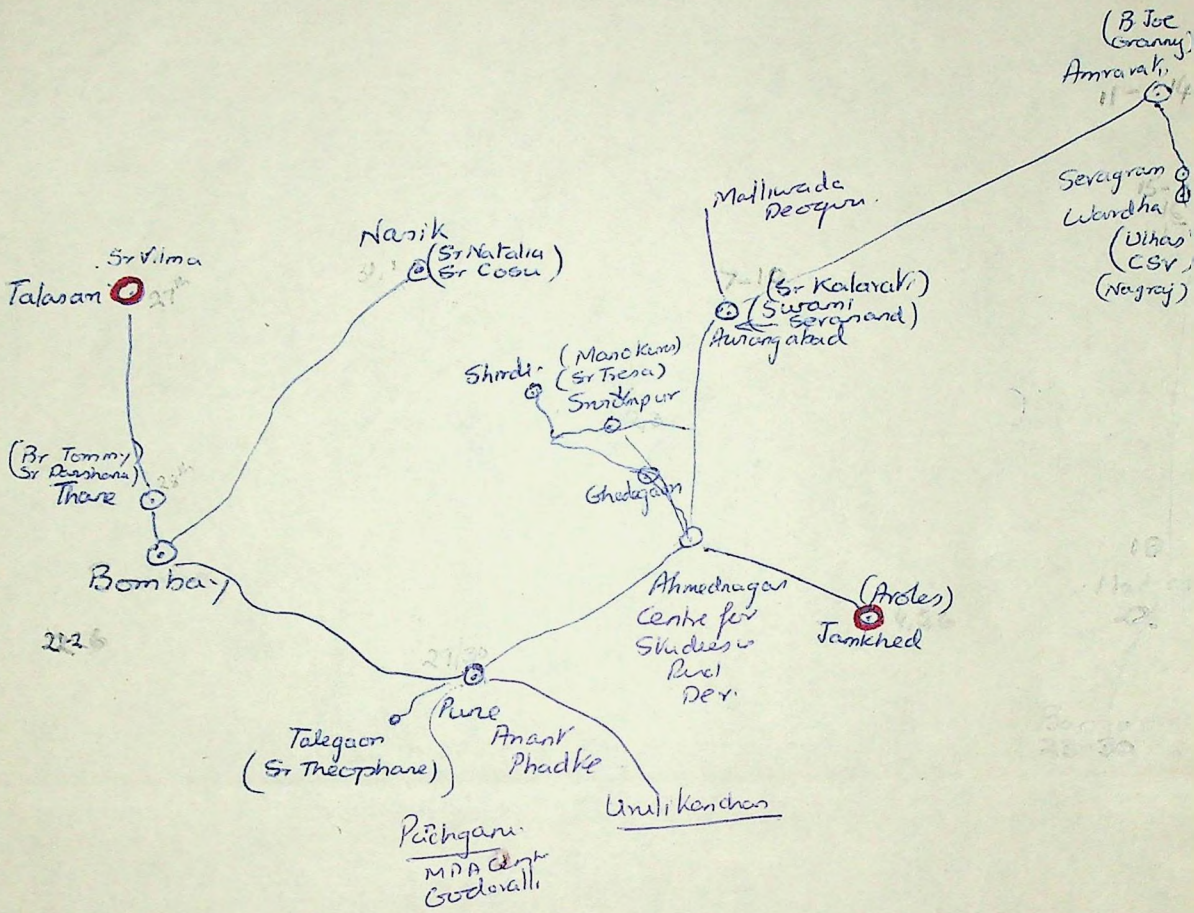 (B Joe
Granny)
Amravati
11-14
Sevagram
Wardha
(Ulhas
CSV)
(Nagraj)
Malliwada
Deogiri.
Nasik
(Sr Natalia
Sr Cosu)
Sr Vilma
Talasari
27th
7-10
(Sr Kalavati)
(Swami
Sevanand)
Aurangabad
Shirdi.
(Manokum)
(Sr Tresa)
Srirampur
(Br Tommy
Sr Darshana)
Thane
28th
Ghodegaon
Bombay
22-26
Ahmednagar
Centre for
Studies in
Rural
Dev.
(Aroles)
Jamkhed
29,30
Pune
Anant
Phadke
Talegaon
(Sr Theophane)
Urulikanchan
Pachgani.
MRA Centre
Godavalli